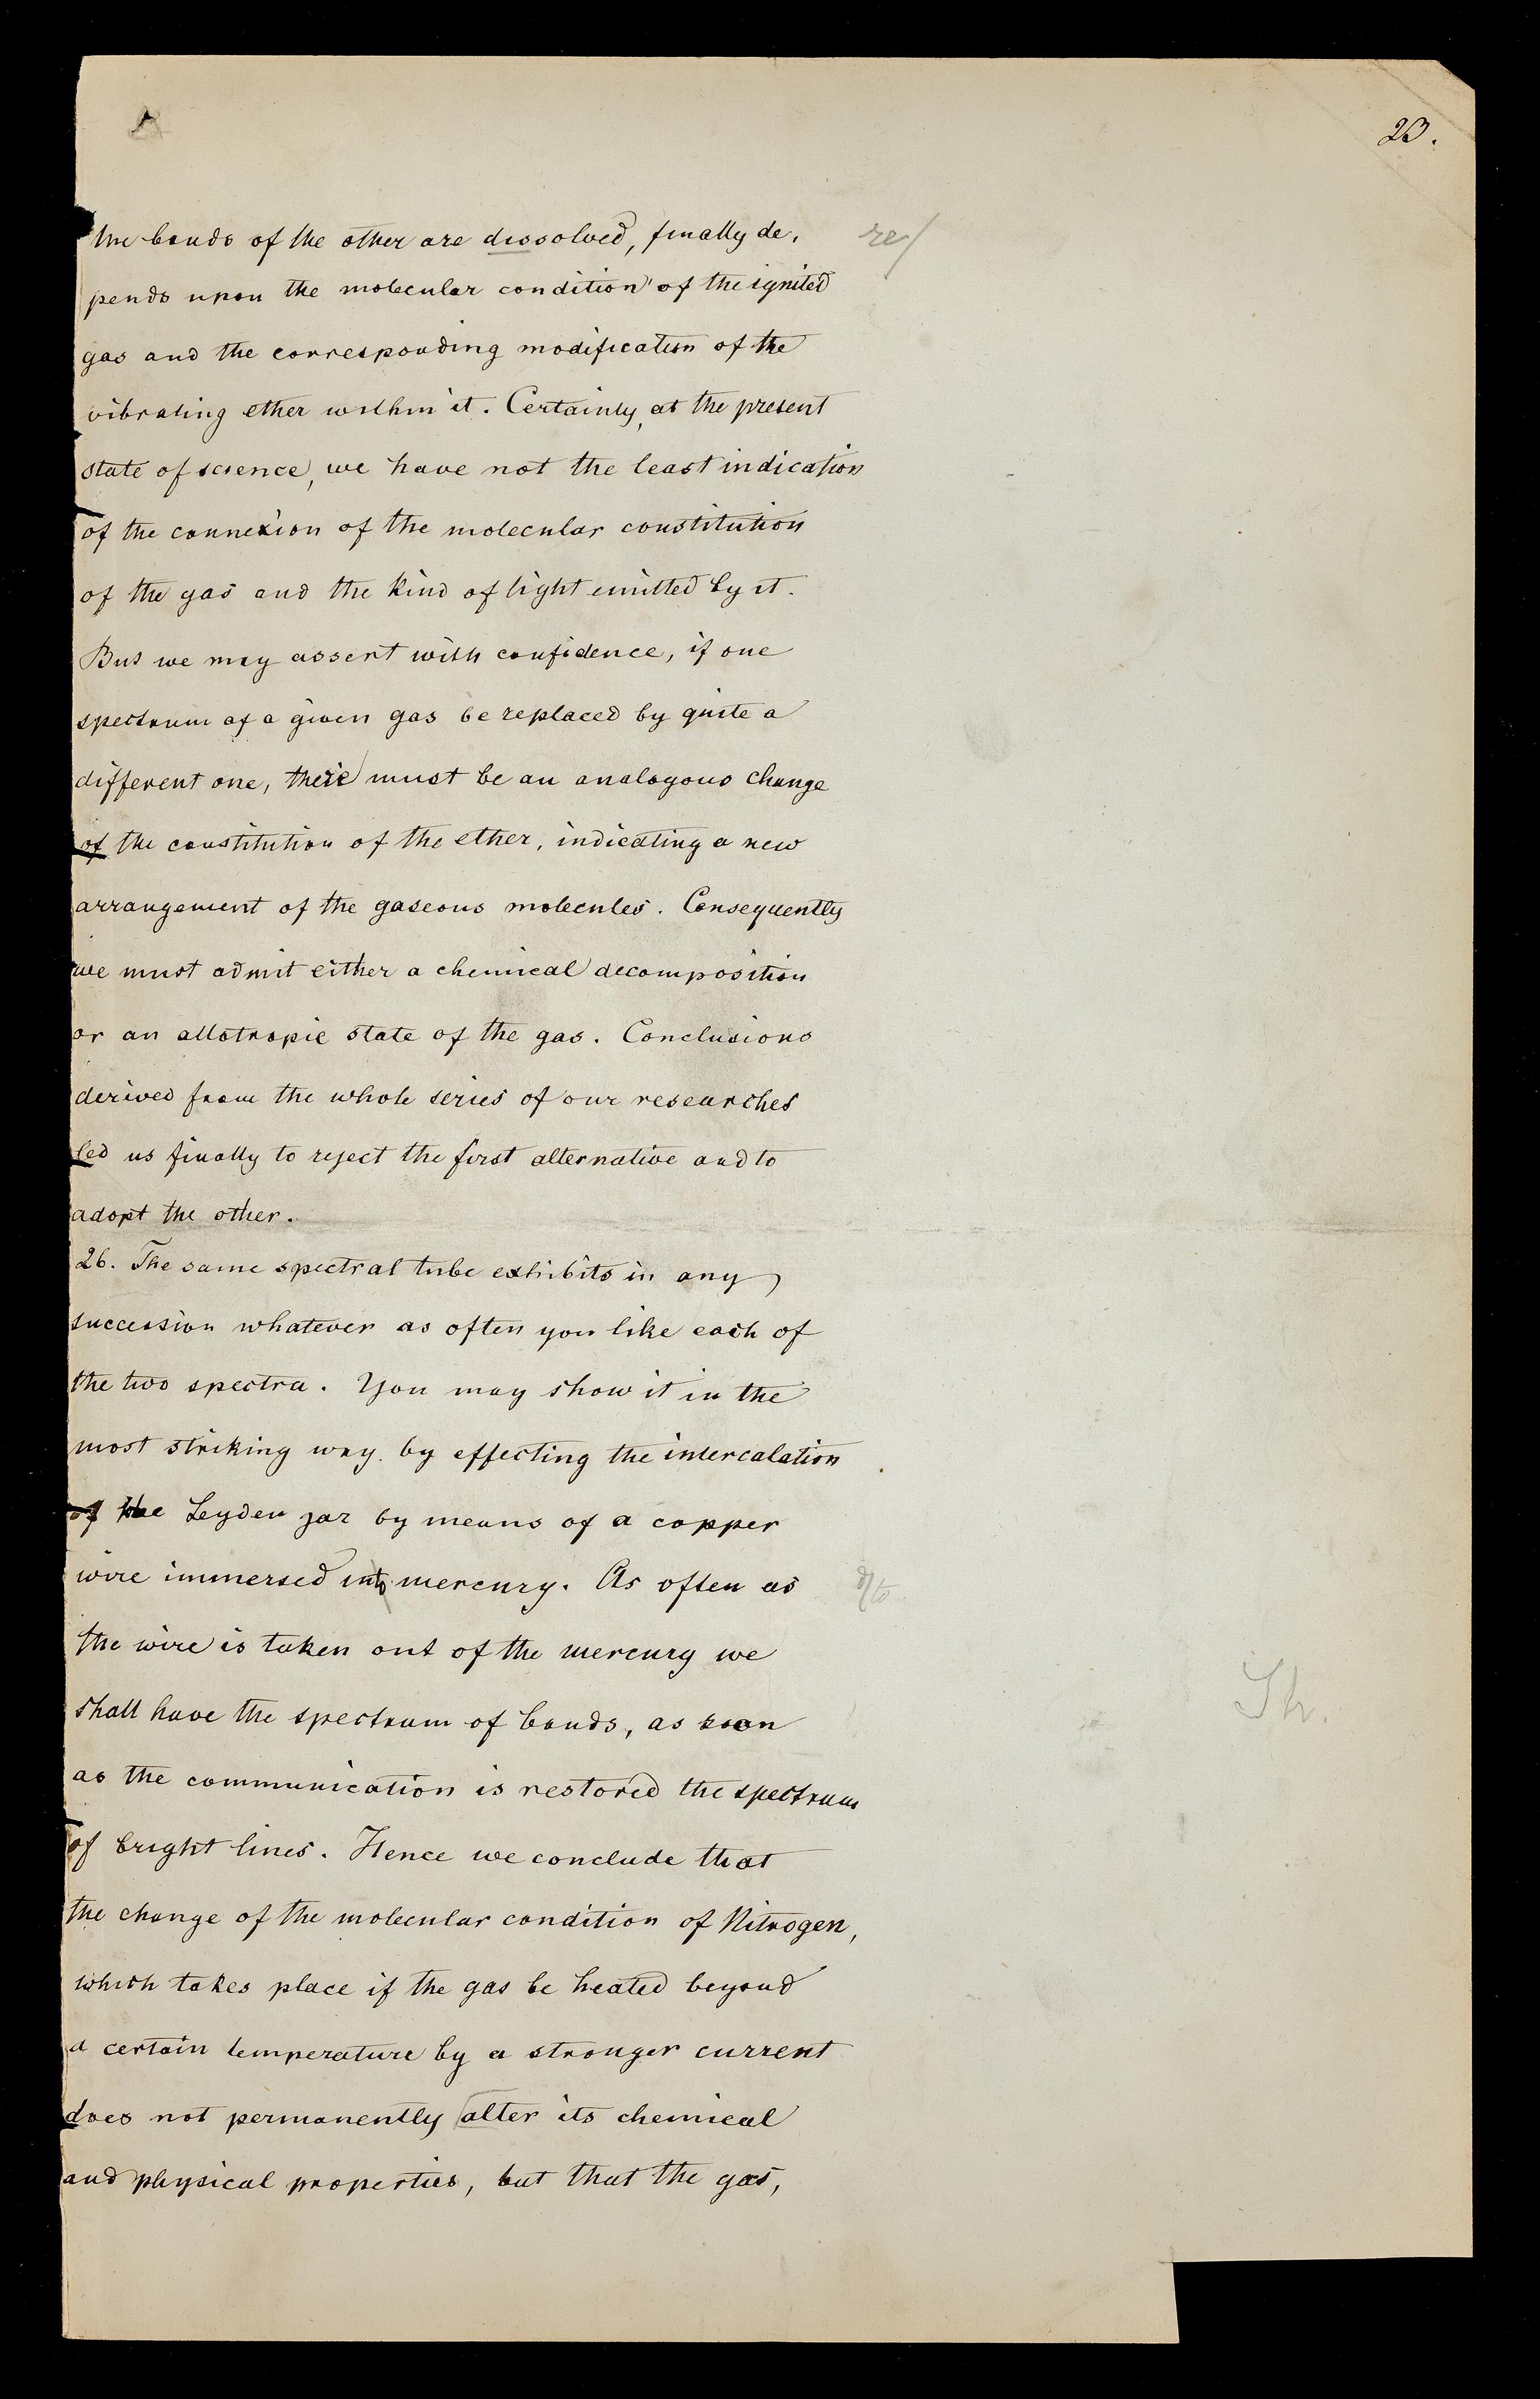 23.
the bands of the other are dissolved, finally de-
re/
pends upon the molecular condition of the ignited
gas and the corresponding modification of the
vibrating ether within it. Certainly, at the present
state of science, we have not the least indication
of the connexion of the molecular constitution
of the gas and the kind of light emitted by it.
But we may assert with confidence, if one
spectrum of a given gas be replaced by quite a
different one, there must be an analogous change
of the constitution of the ether, indicating a new
arrangement of the gaseous molecules. Consequently
we must admit either a chemical decomposition
or an allotropic state of the gas. Conclusions
derived from the whole series of our researches
led us finally to reject the first alternative and to
adopt the other.
26. The same spectral tube exhibits in any
succession whatever as often you like each of
the two spectra. You may show it in the
most striking way by effecting the intercalation
of the Leyden jar by means of a copper
wire immersed into mercury. As often as
the wire is taken out of the mercury we
shall have the spectrum of bands, as soon
as the communication is restored the spectrum
of bright lines. Hence we conclude that
the change of the molecular condition of Nitrogen,
which takes place if the gas be heated beyond
a certain temperature by a stronger current
does not permanently alter its chemical
and physical properties, but that the gas,